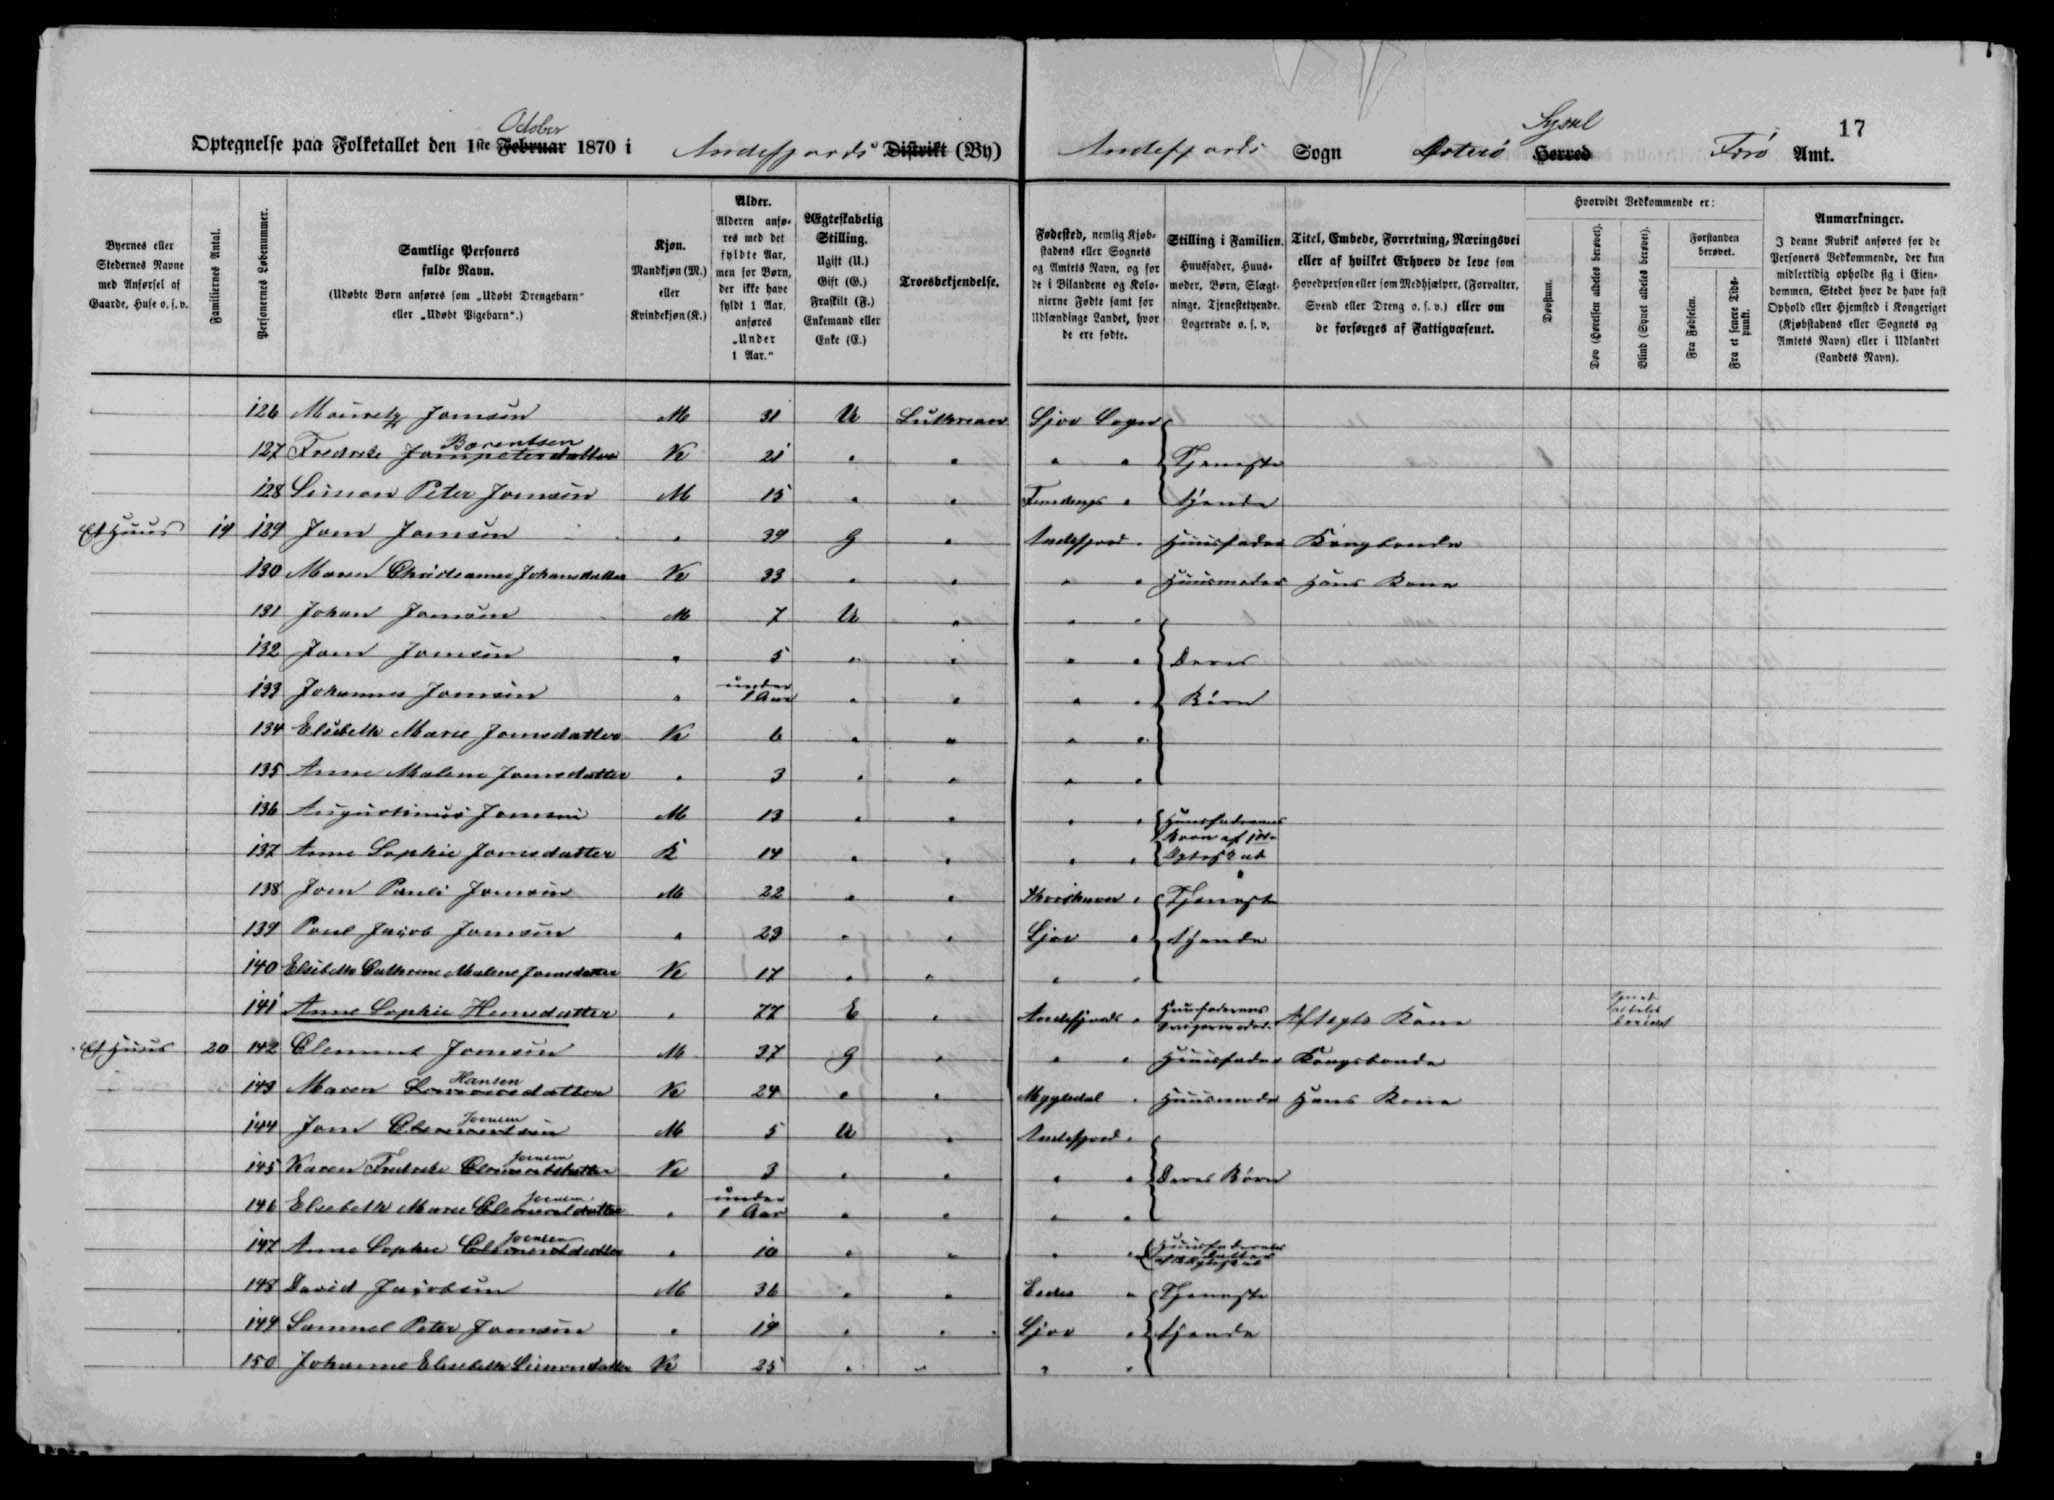 October
Optegnelse paa Folketallet den 1ste Februar 1870 i Andefjords Distrikt (By)
Andefjords Sogn Østerø Herred Sysul Færø Amt.
17
Byernes eller Stedernes Navne med Anførsel af Gaarde, Huse o. s. v.
Familiernes Antal.
Personernes Løbenummer.
Samtlige Personers fulde Navn.
(Udøbte Børn anføres som „Udøbt Drengebarn“ eller „Udøbt Pigebarn“.)
Kjøn.
Mandkjøn (M.) eller Kvindekjøn (K.)
Alder.
Alderen anføres med det fyldte Aar, men for Børn, der ikke have fyldt 1 Aar, anføres „Under 1 Aar.“
Ægteskabelig Stilling.
Ugift (U.) Gift (G.) Fraskilt (F.) Enkemand eller Enke (E.)
Troesbekjendelse.
Fødested, nemlig Kjøbstadens eller Sognets og Amtets Navn, og for de i Bilandene og Kolonierne Fødte samt for Udlændinge Landet, hvor de ere fødte.
Stilling i Familien.
Huusfader, Huusmoder, Børn, Slægtninge, Tjenestetyende, Logerende o. s. v.
Titel, Embede, Forretning, Næringsvei eller af hvilket Erhverv de leve som Hovedperson eller som Medhjælper, (Forvalter, Svend eller Dreng o. s. v.) eller om de forsørges af Fattigvæsenet.
Hvorvidt Vedkommende er:
Døvstum.
Døv (Hørelsen aldeles berøvet).
Blind (Synet aldeles berøvet).
Forstanden berøvet.
Fra Fødselen.
Fra et senere Tidspunkt.
Anmærkninger.
I denne Rubrik anføres for de Personers Vedkommende, der kun midlertidig opholde sig i Eiendommen, Stedet hvor de have fast Ophold eller Hjemsted i Kongeriget (Kjøbstadens eller Sognets og Amtets Navn) eller i Udlandet (Landets Navn).
126 Mouretz Joensen M 31 U Luthrean Sjov Sogn
127 Fredrike Joenpetersdatter Barentsen K 21 " " " " Tjeneste
128 Simon Peter Joensen M 15 " " " tyende
Et Huus 19 129 Joen Joensen " 39 G " Andefjord " Huusfader Kongsbonde
130 Maren Christianne Johansdatter K 33 " " " " Huusmoder Hans Kone
131 Johan Joensen M 7 U " " "
132 Joen Joensen " 5 " " " " Deres
133 Johannes Joensen " under 1 Aar " " " " Børn
134 Elsebeth Marie Joensdatter K 6 " " " "
135 Anne Malene Joensdatter " 3 " " " "
136 Augustinus Joensen M 13 " " " " Huusfaderens
137 Anne Sophie Joensdatter K 14 " " " " Børn af første Ægteskab
138 Joen Pauli Joensen M 22 " " Thorshavn " Tjeneste
139 Poul Jacob Joensen " 23 " " Sjov " tyende
140 Elsebeth Cathrine Malene Joensdatter K 17 " " " "
141 Anne Sophie Hansdatter " 77 E " Andefjords " Huusfaderens Svigermoder Aftægts Kone Synet aldeles berøvet
Et Huus 20 142 Clement Joensen M 37 G " " " Huusfader Kongsbonde
143 Maren Hansen K 24 " " Mygledal " Huusmoder Hans Kone
144 Joen Clementsen Joensen M 5 U " Andefjord "
145 Karen Fredrike Clementsdatter Joensen K 3 " " " " Deres Børn
146 Elsebeth Marie Clementsdatter Joensen " under 1 Aar " " " "
147 Anne Sophie Clementsdatter Joensen " 10 " " " " Huusfaderens Datter
148 David Jacobsen M 36 " " Eides " Tjeneste
149 Samuel Peter Joensen " 19 " " Sjov " tyende
150 Johanne Elisebeth Simonsdatter K 25 " " " "